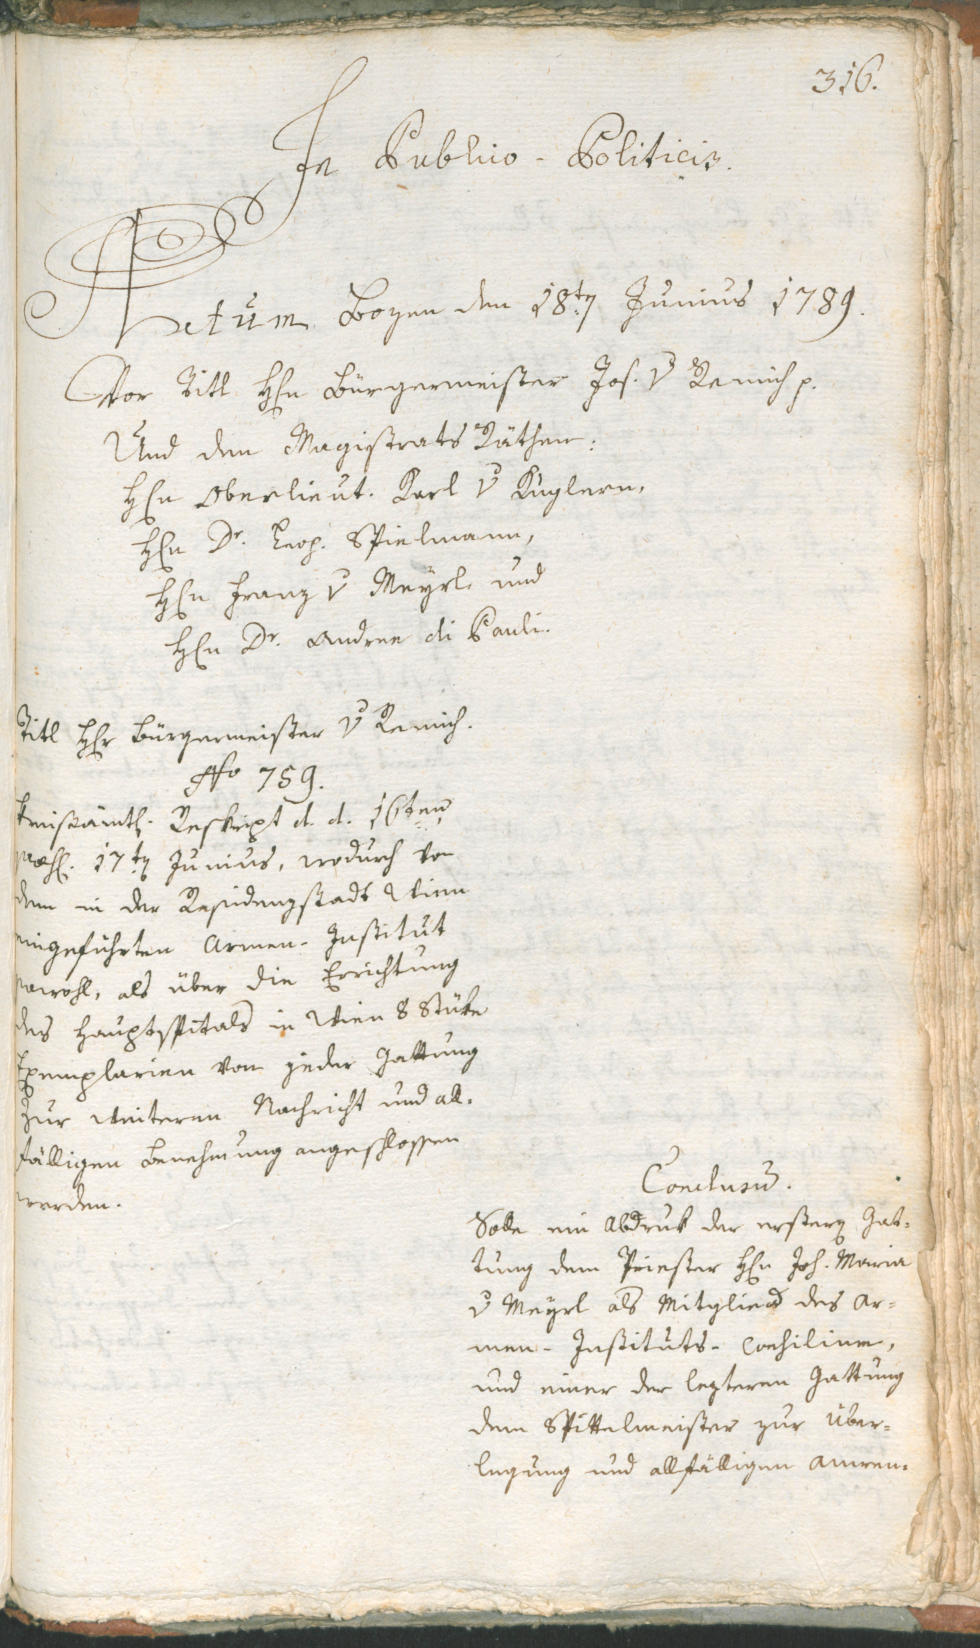 316.
In Publico-Politicis.
Actum Bozen den 18t. Junius 1789.
Vor Titl Hℓn Bürgermeister Jos. v Remich p.
Und den Magistrats Räthen:
Hℓn Oberlieut. Karl v Kuglern,
Hℓn Dr. Leop. Spielmann,
Hℓn Franz v Meÿrl und
Hℓn Dr. Andree di Pauli.
Titl Hℓr Bürgermeister v Remich.
No 759.
Kreisämtl. Reskript d. d. 16ten
præs. 17t. Junius, wodurch von
dem in der Residenzstadt Wien
eingeführten Armen-Institut
sowohl, als über die Errichtung
des Hauptspitals in Wien 8 Stüke
Exemplarien von jeder Gattung
zur weiteren Nachricht und all-
fälligen Benehmung angeschlossen
werden.
Conclusum.
Solle ein Abdruk der ersteren Gat-
tung dem Priester Hℓn Joh. Maria
v Meÿrl als Mitglied des Ar-
men-Instituts-Consilium,
und einer der lezteren Gattung
dem Spittelmeister zur Über-
legung und allfälligen Anwen-